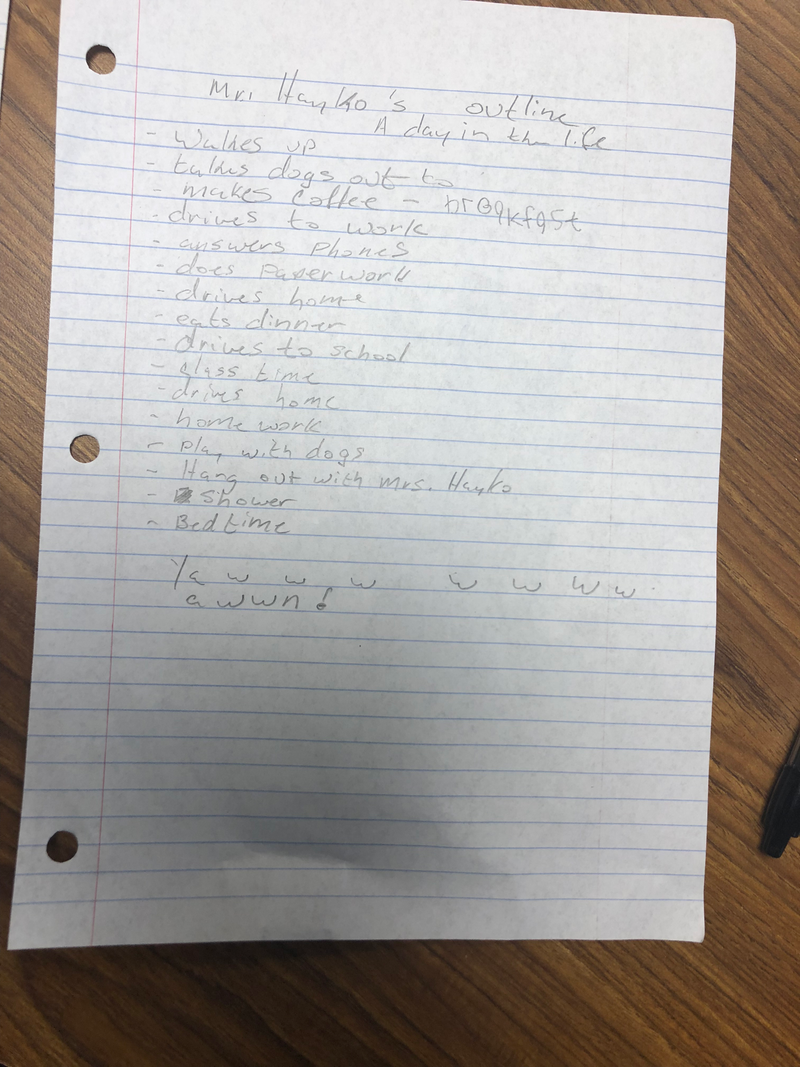 Mr. Hayko's outline
A day in the life
- Walkes up
- talkes dogs out to
- makes Coffee -
- drives to work
- answers Phones
- does Paperwork
- drives home
- eats dinner
- drives to school
- glass time
- drives home
- home work
- play with dogs
- Hang out with mrs. Hayko
- Shower
- Bedtime
Ya w w w w w w w
a wwn!